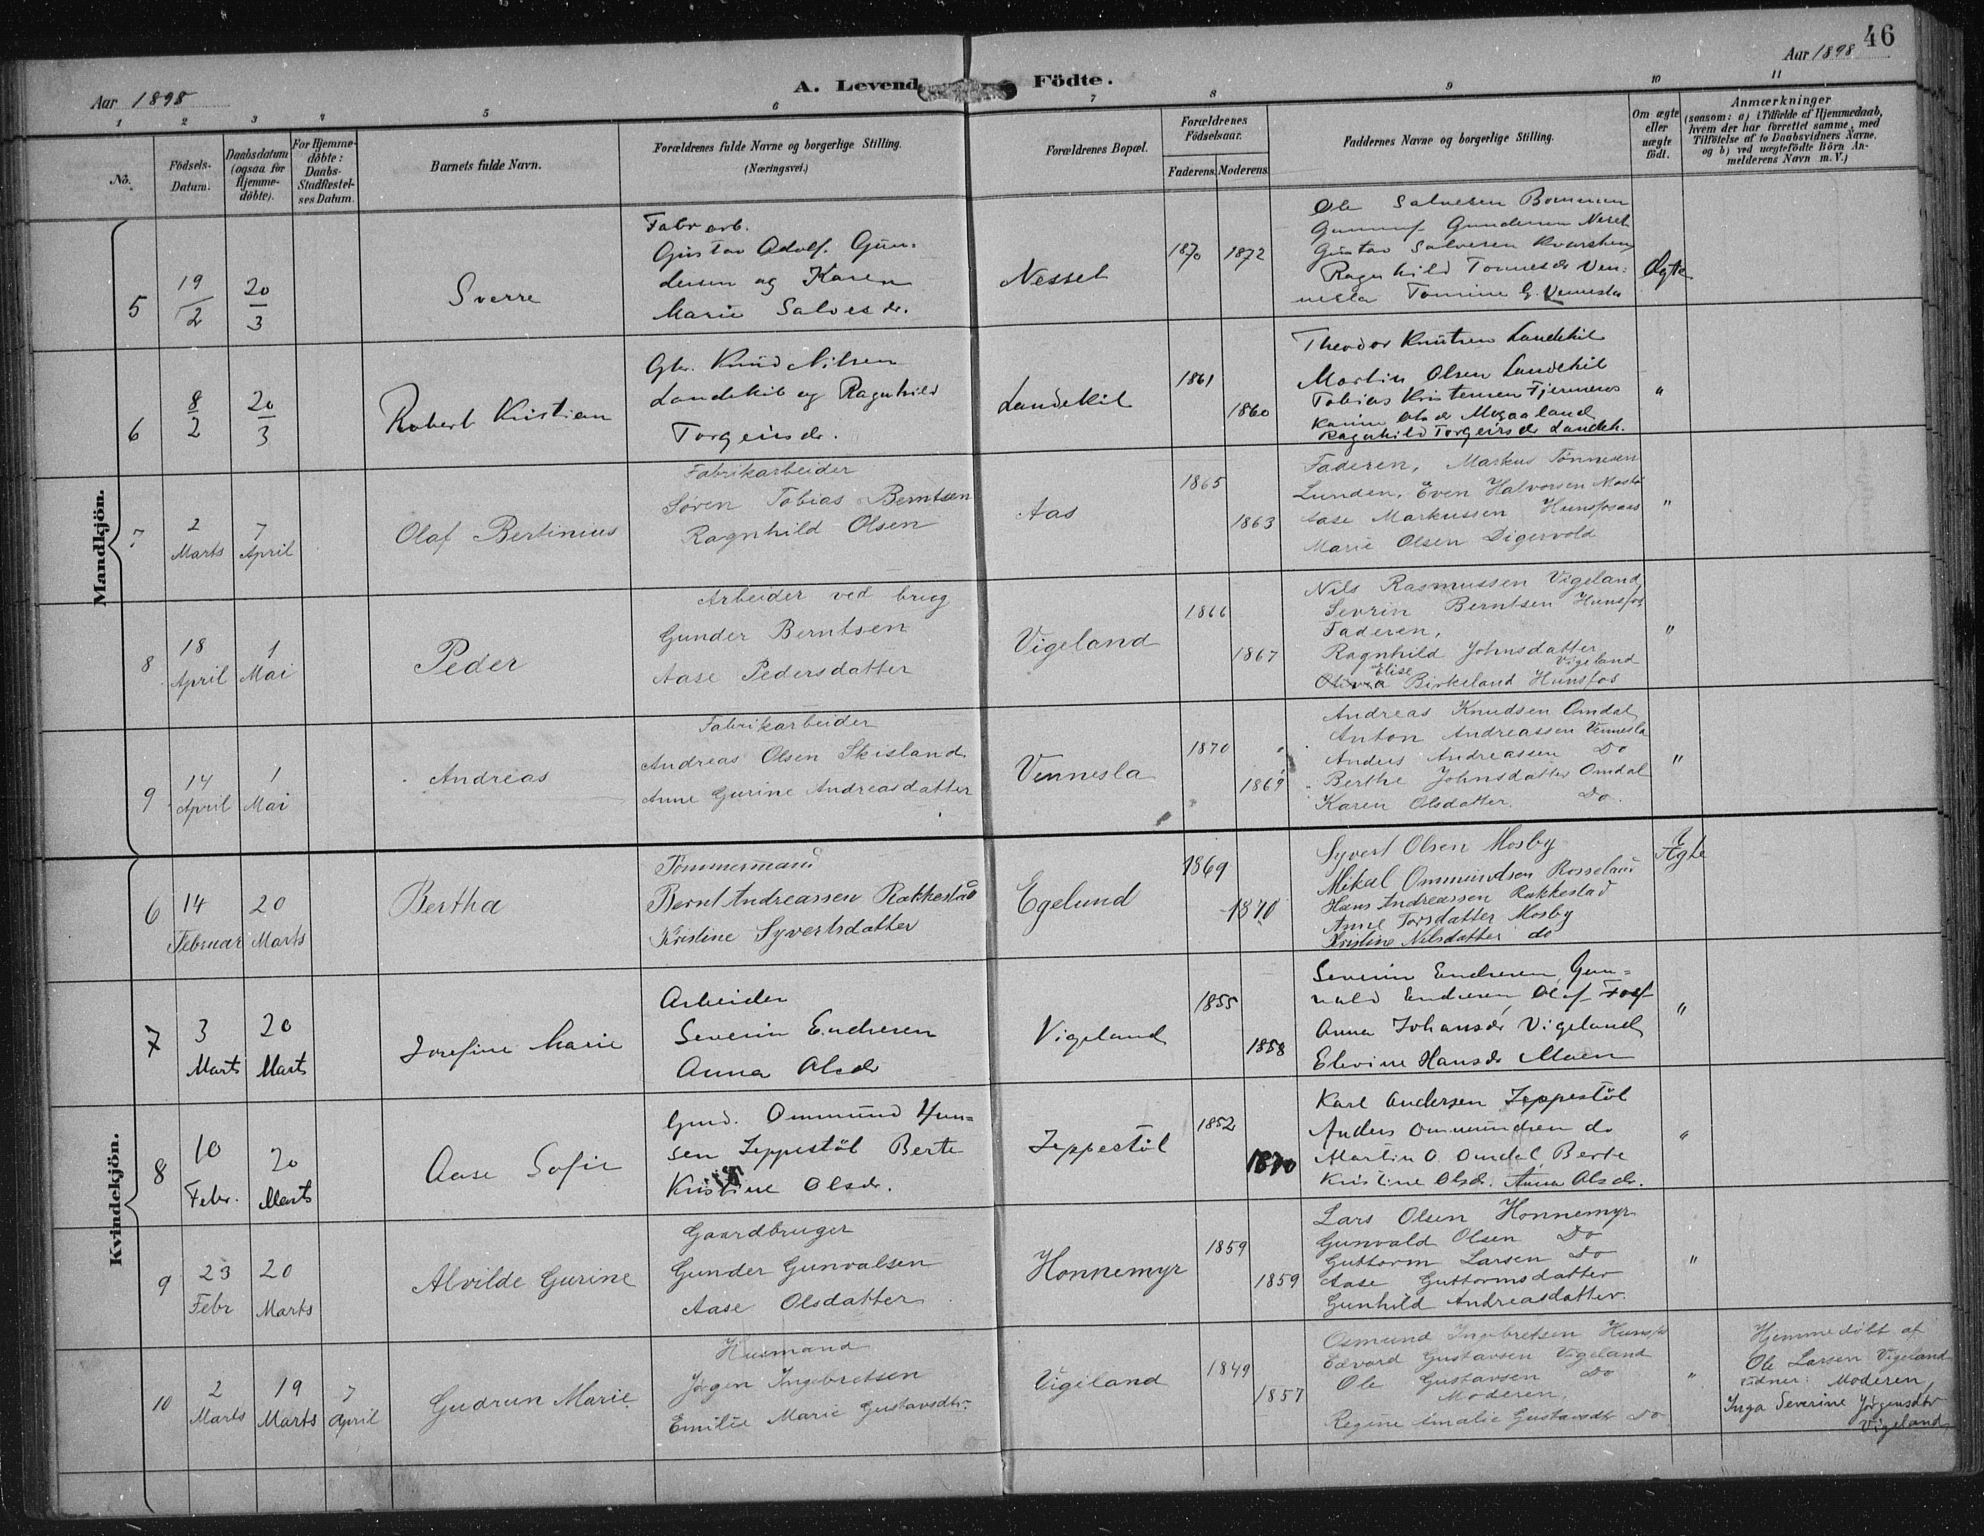 46
Aar 1898
A. Levend Födte.
Aar 1898
1 2 3 4 5 6 7 8 9 10 11
No.
Födsels-Datum.
Daabsdatum (ogsaa for Hjemme-döbte).
For Hjemme-döbte: Daabs-Stadfæstel-ses Datum.
Barnets fulde Navn.
Forældrenes fulde Navne og borgerlige Stilling.
(Næringsvei.)
Forældrenes Bopæl.
Forældrenes Födselsaar.
Faderens. Moderens.
Faddernes Navne og borgerlige Stilling.
Om ægte eller uægte födt.
Anmærkninger
(saasom: a) i Tilfælde af Hjemmedaab, hvem der har forrettet samme, med Tilföielse af to Daabsvidners Navne, og b) ved uægtefödte Börn Anmelderens Navn m. V.)
Mandkjön.
5
19/2
20/3
Sverre
Fabr arb.
Gustav Adolf Gun-
dersen og Karen
Marie Salvesdr.
Nesset
1870 1872
Ole Salvesen
Gundersen Neset
Gustav Salvesen
Ragnhild Tonnesdr Ven-
nesla Tomine G. Vennesla
Ægte
6
8/2
20/3
Robert Kristian
Gbr. Knud Nilsen
Landekil og Ragnhild
Torgeirsdr.
Landekil
1861
1860
Theodor Knutsen Landekil
Martin Olsen Landekil
Tobias Kristensen
Olsdr
Ragnhild Torgeirsdr Landek.
"
7
2 Marts
7 April
Olaf Bertinius
Fabrikarbeider
Søren Tobias Berntsen
Ragnhild Olsen
Aas
1865
1863
Faderen, Markus Tønnesen
Lunden, Even Halvorsen
Aase Markussen Hunsfosaas
Marie Olsen Digervold
"
8
18 April
1 Mai
Peder
Arbeider ved brug
Gunder Berntsen
Aase Pedersdatter
Vigeland
1866
1867
Nils Rasmussen Vigeland,
Sevrin Berntsen Hunsfos
Faderen,
Ragnhild Johnsdatter
Vigeland
Elise
Olivia Birkeland Hunsfos
"
9
14 April
1 Mai
Andreas
Fabrikarbeider
Andreas Olsen Skisland
Anne Gurine Andreasdatter
Vennesla
1870
1869
Andreas Knudsen Omdal
Anton Andreassen Vennesla
Anders Andreassen Do
Berthe Johnsdatter Omdal
Karen Olsdatter Do.
"
Kvindekjön.
6
14 Februar
20 Marts
Bertha
Tømmermand
Bernt Andreassen Rakkestad
Kristine Syvertsdatter
Egelund
1869
1870
Syvert Olsen Mosby
Mikal Ommundsen Rosseland
Hans Andreassen Rakkestad
Anne Torsdatter Mosby
Kristine Nilsdatter do
Ægte
7
3 Marts
20 Marts
Josefine Marie
Arbeider
Severin Endresen
Anna Olsdr
Vigeland
1855
1858
Severin Endresen, Gun-
vald Endresen Olaf
Anna Johansdr Vigeland
Elevine Hansdr Moen
"
8
10 Febr.
20 Marts
Aase Sofie
Gmd. Ommund Han-
sen Jeppestöl Berte
Kristine Olsdr.
Jeppestöl
1852
1870
Karl Andersen Jeppestöl
Anders Ommundsen do
Martin O Omdal Berte
Kristine Olsdr. Anna Olsdr.
"
9
23 Febr
20 Marts
Alvilde Gurine
Gaardbruger
Gunder Gunvalsen
Aase Olsdatter
Honnemyr
1859
1859
Lars Olsen Honnemyr
Gunvald Olsen Do
Guttorm Larsen Do
Aase Guttormsdatter
Gunhild Andreasdatter.
"
10
2 Marts
19 Marts
7 April
Gudrun Marie
Husmand
Jørgen Ingebretsen
Emilie Marie Gustavsdtr.
Vigeland
1849
1857
Osmund Ingebretsen Hunsfos
Edvard Gustavsen Vigeland
Ole Gustavsen Do
Moderen,
Regine Amalie Gustavsdtr Do
"
Hjemmedøbt af
Ole Larsen Vigeland
vidner: Moderen,
Inga Severine Jørgensdtr
Vigeland